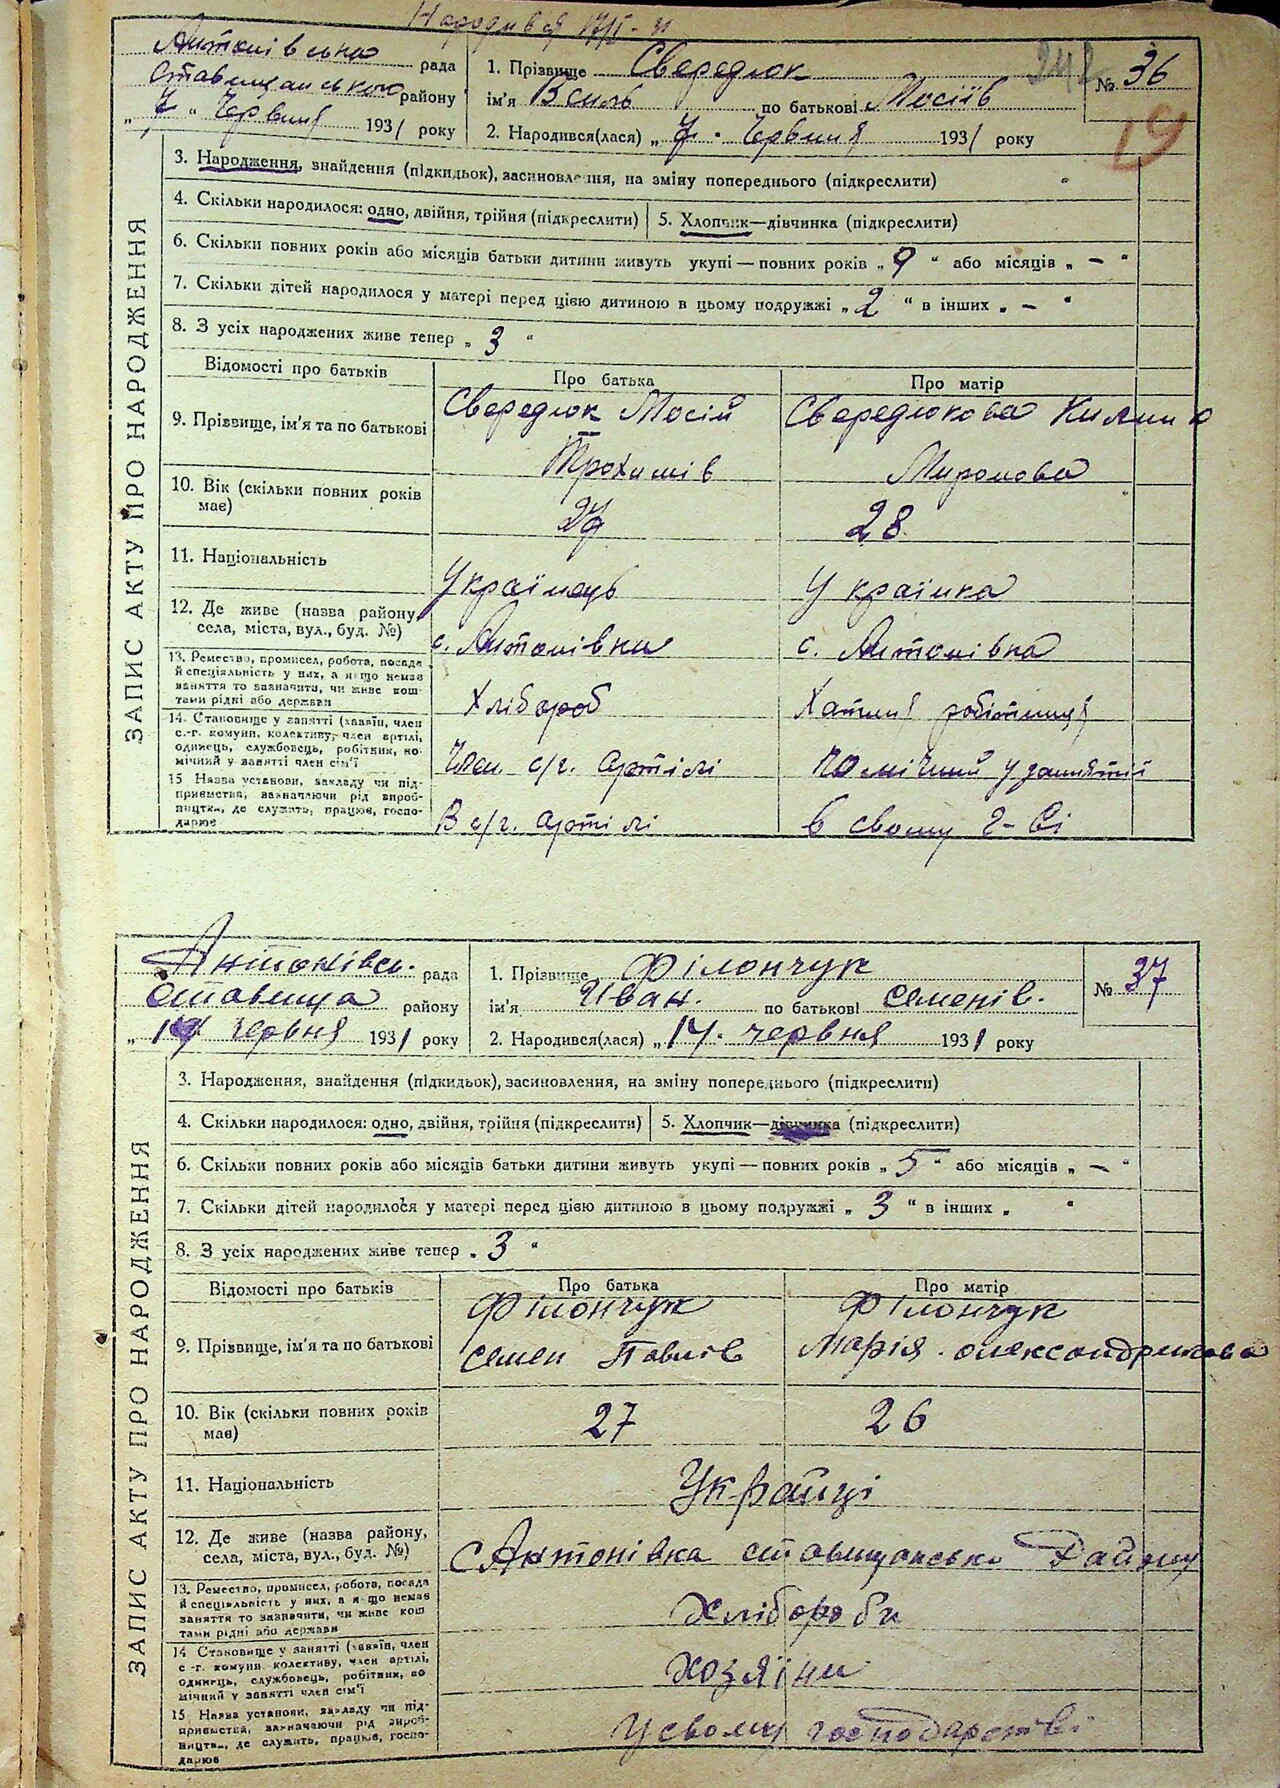 Народився 17/І-31
Антонівська рада
Ставищанського району
„ 7 " Червня 1931 року
1. Прізвище Свередюк
ім'я Василь по батькові Мосіїв
2. Народився(лася) „ 7 " Червня 1931 року
242
№ 36
19
ЗАПИС АКТУ ПРО НАРОДЖЕННЯ
3. Народження, знайдення (підкидьок), засиновлення, на зміну попереднього (підкреслити)
4. Скільки народилося: одно, двійня, трійня (підкреслити) 5. Хлопчик—дівчинка (підкреслити)
6. Скільки повних років або місяців батьки дитини живуть укупі — повних років „ 9 " або місяців „ — "
7. Скільки дітей народилося у матері перед цією дитиною в цьому подружжі „ 2 " в інших „ — "
8. З усіх народжених живе тепер „ 3 "
Відомості про батьків Про батька Про матір
9. Прізвище, ім'я та по батькові Свередюк Мосій Свередюкова Килина
Трохимів Миронова
10. Вік (скільки повних років має) 27 28
11. Національність Українець Українка
12. Де живе (назва району, села, міста, вул., буд. №) с. Антонівка с. Антонівка
13. Ремество, промисел, робота, посада
й спеціяльність у них, а якщо немає
заняття то зазначити, чи живе кош-
тами рідні або держави
Хлібороб Хатня робітниця
14. Становище у занятті (хазяїн, член
с.-г. комуни, колективу, член артілі,
одинець, службовець, робітник, по-
мічний у занятті член сім'ї
Член с/г. артілі помічний у занятті
15 Назва установи, закладу чи під-
приємства, зазначаючи рід вироб-
ництва, де служить, працює, госпо-
дарює
В с/г. артілі в свому г-ві
Антонівсь. рада
Ставища району
„ 14 червня 1931 року
1. Прізвище Філончук
ім'я Иван. по батькові Семенів.
2. Народився(лася) „ 14. червня 1931 року
№ 37
ЗАПИС АКТУ ПРО НАРОДЖЕННЯ
3. Народження, знайдення (підкидьок), засиновлення, на зміну попереднього (підкреслити)
4. Скільки народилось: одно, двійня, трійня (підкреслити) 5. Хлопчик—дівчинка (підкреслити)
6. Скільки повних років або місяців батьки дитини живуть укупі — повних років „ 5 " або місяців „ — "
7. Скільки дітей народилося у матері перед цією дитиною в цьому подружжі „ 3 " в інших „ "
8. З усіх народжених живе тепер „ 3 "
Відомості про батьків Про батька Про матір
Філончук Філончук
9. Прізвище, ім'я та по батькові Семен Павлів Марія Олександрикова
10. Вік (скільки повних років має) 27 26
11. Національність Українці
12. Де живе (назва району, села, міста, вул., буд. №) с Антонівка ставищансько району
13. Ремество, промисел, робота, посада
й спеціяльність у них, а якщо немає
заняття то зазначити, чи живе кош
тами рідні або держави
Хлібороби
14 Становище у занятті (хазяїн, член
с.-г. комуни колективу, член артілі,
одинець, службовець, робітник, по
мічний у занятті член сім'ї
Хозяїни
15 Назва установи, закладу чи під-
приємства, зазначаючи рід вироб-
ництва, де служить, працює, госпо-
дарює
У свому господарстві